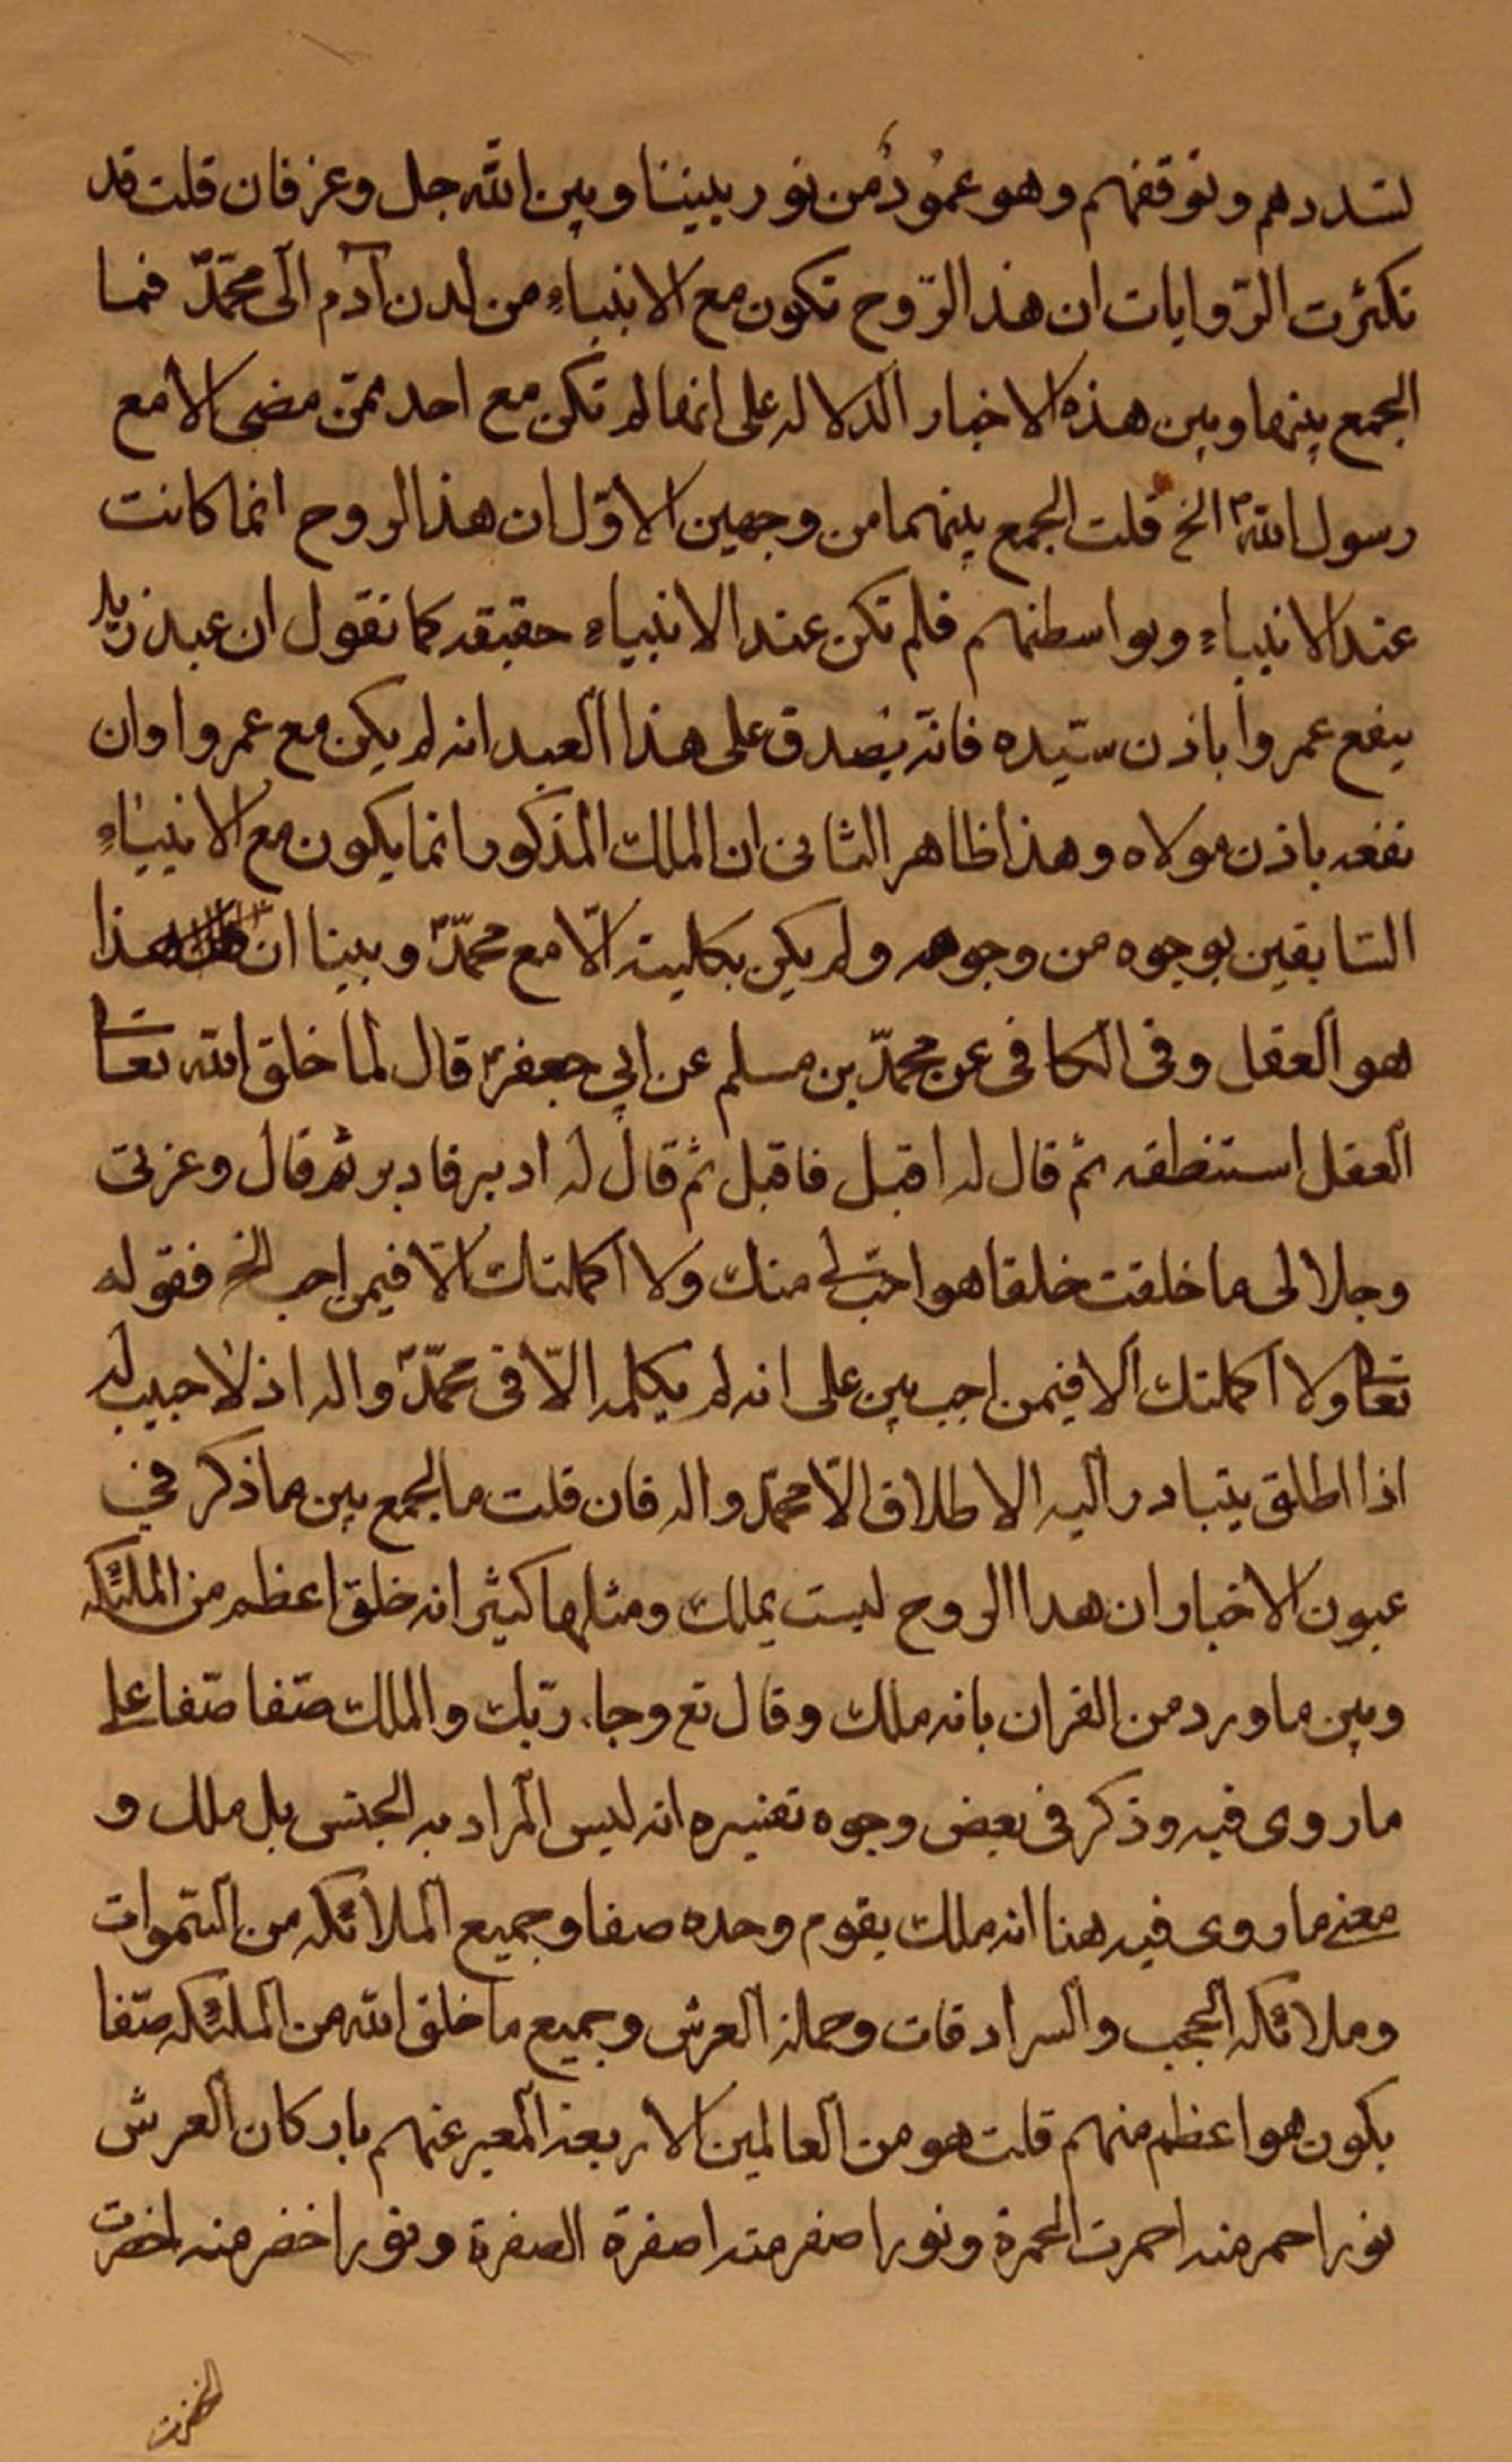 تسددهم وتوقفهم وهو عمُودٌ من نور بيننا وبين الله جل وعز فان قلت قد
تكثرت الرّوايات ان هذا الرّوح تكون مع الانبياءِ من لدن آدم الى محمّدؐ فما
الجمع بينها وبين هذه الاخبار الدلاله على انها لم تكن مع احد ممّن مضى الا مع
رسول اللهؐ الخ قلت الجمع بينهما من وجهين الاوّل ان هذا الروح انما كانت
عند الانبياءِ وبواسطتهم فلم تكن عند الانبياءِ حقيقه كما نقول ان عبد زيد
ينفع عمروا باذن سيّده فانّه يصدق على هذا العبد انه لم يكن مع عمروا وان
نفعه باذن مولاه وهذا ظاهر الثانى ان الملك المذكور انما يكون مع الانبياءِ
السّابقين بوجوه من وجوهه ولم يكن بكليته الّا مع محمّدؐ وبينا انّ هذا
هو العقل وفى الكافى عن محمّد بن مسلم عن ابي جعفرؑ قال لما خلق الله تعا
العقل استنطقه ثم قال له اقبل فاقبل ثم قال له ادبر فادبر ثم قال وعزتى
وجلالى ما خلقت خلقا هو احبّ الي منك ولا اكملتك الّا فيمن احب الخ فقوله
تعا ولا اكملتك الا فيمن احب بين على انه لم يكمله الّا فى محمّدؐ واله اذ لا حبيب له
اذا اطلق يتبادر اليه الاطلاق الّا محمّد واله فان قلت ما الجمع بين ما ذكر في
عيون الاخبار ان هدا الروح ليست بملك ومثلها كثير انه خلق اعظم من الملئكه
وبين ما ورد من القران بانه ملك وقال تع وجاء ربّك والملك صفّا صفّا على
ما روى فيه وذكر فى بعض وجوه تفسيره انه ليس المراد به الجنس بل ملك و
معنى ما روى فيه هنا انه ملك يقوم وحده صفا وجميع الملائكه من السّموات
وملائكه الحجب والسرادقات وحملة العرش وجميع ما خلق الله من الملئكه صفّا
يكون هو اعظم منهم قلت هو من العالمين الاربعة المعبر عنهم باركان العرش
نور احمر منه احمرت الحمرة ونور اصفر منه اصفرة الصفرة ونور اخضر منه اخضرت
الخضرة